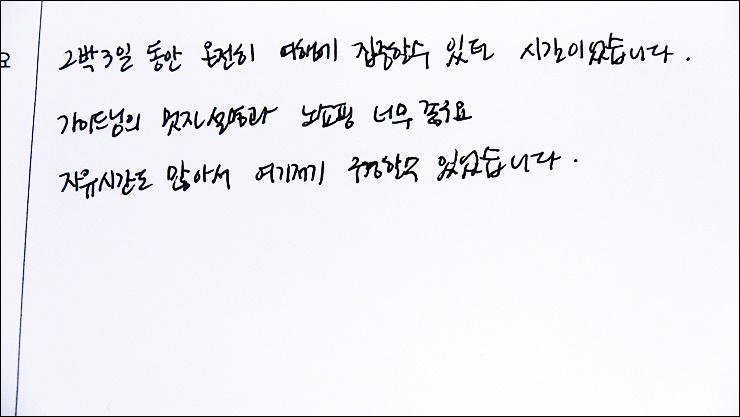 2박3일 동안 온전히 여행에 집중할수 있던 시간이었습니다.
가이드님의 멋진설명과 노쇼핑 너무 좋구요
자유시간도 많아서 여기저기 구경할수 있었습니다.